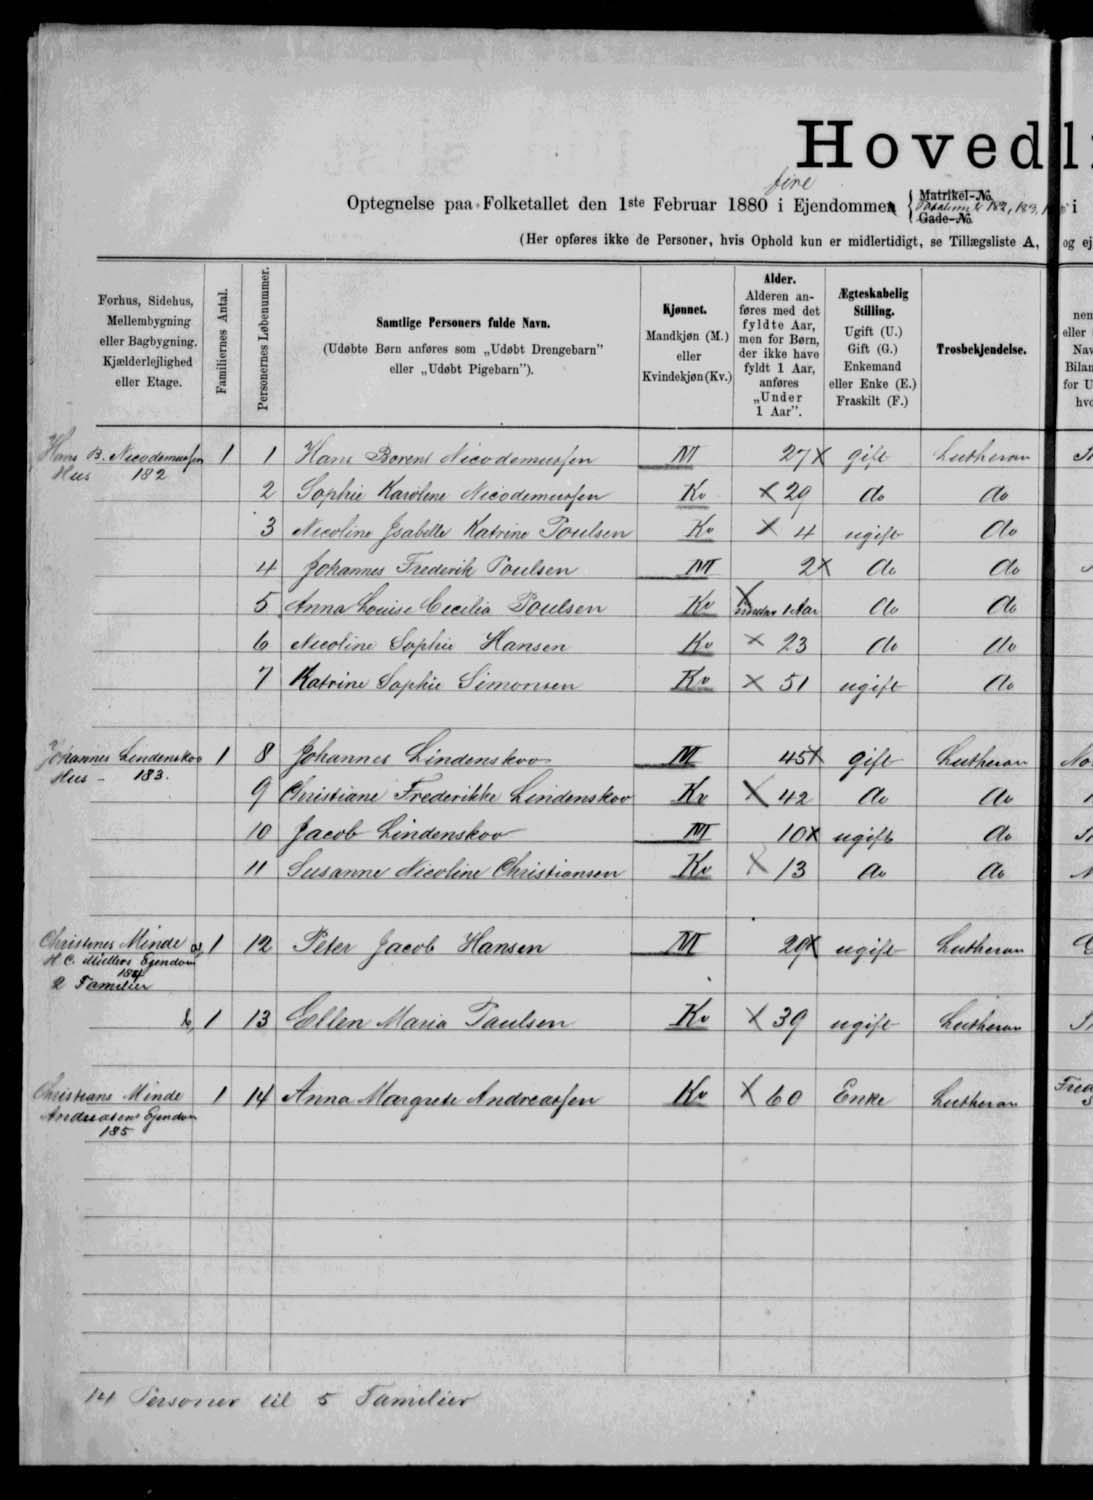 Hovedl
fire
Optegnelse paa Folketallet den 1ste Februar 1880 i Ejendommen { Matrikel-No. 182, 183, i
Gade-No.
(Her opføres ikke de Personer, hvis Ophold kun er midlertidigt, se Tillægsliste A, og ej
Forhus, Sidehus, Mellembygning eller Bagbygning. Kjælderlejlighed eller Etage.
Familiernes Antal.
Personernes Løbenummer.
Samtlige Personers fulde Navn.
(Udøbte Børn anføres som „Udøbt Drengebarn"
eller „Udøbt Pigebarn").
Kjønnet.
Mandkjøn (M.)
eller
Kvindekjøn (Kv.)
Alder.
Alderen anføres med det fyldte Aar, men for Børn, der ikke have fyldt 1 Aar, anføres „Under 1 Aar".
Ægteskabelig Stilling.
Ugift (U.)
Gift (G.)
Enkemand
eller Enke (E.)
Fraskilt (F.)
Trosbekjendelse.
Hans B. Nicodemussen 1 1 Hans Berent Nicodemussen M 27 x gift Lutheran
Hus 182
2 Sophie Karoline Nicodemussen Kv x 29 do do
3 Nicoline Isabelle Katrine Poulsen Kv x 4 ugift do
4 Johannes Frederik Poulsen M 2 x do do
5 Anna Louise Cecilia Poulsen Kv x under 1 Aar do do
6 Nicoline Sophie Hansen Kv x 23 do do
7 Katrine Sophie Simonsen Kv x 51 ugift do
Johannes Lindenskov 1 8 Johannes Lindenskov M 45 x gift Lutheran No
Hus - 183.
9 Christiane Frederikke Lindenskov Kv x 42 do do
10 Jacob Lindenskov M 10 x ugift do
11 Susanne Nicoline Christiansen Kv x 13 do do
Christines Minde a, 1 12 Peter Jacob Hansen M 29 x ugift Lutheran
H. C. Müllers Ejendom
184
2 Familier
b, 1 13 Ellen Maria Paulsen Kv x 39 ugift Lutheran
Christians Minde 1 14 Anna Margrete Andreassen Kv x 60 Enke Lutheran Fred
Andreasens Ejendom
185
14 Personer til 5 Familier